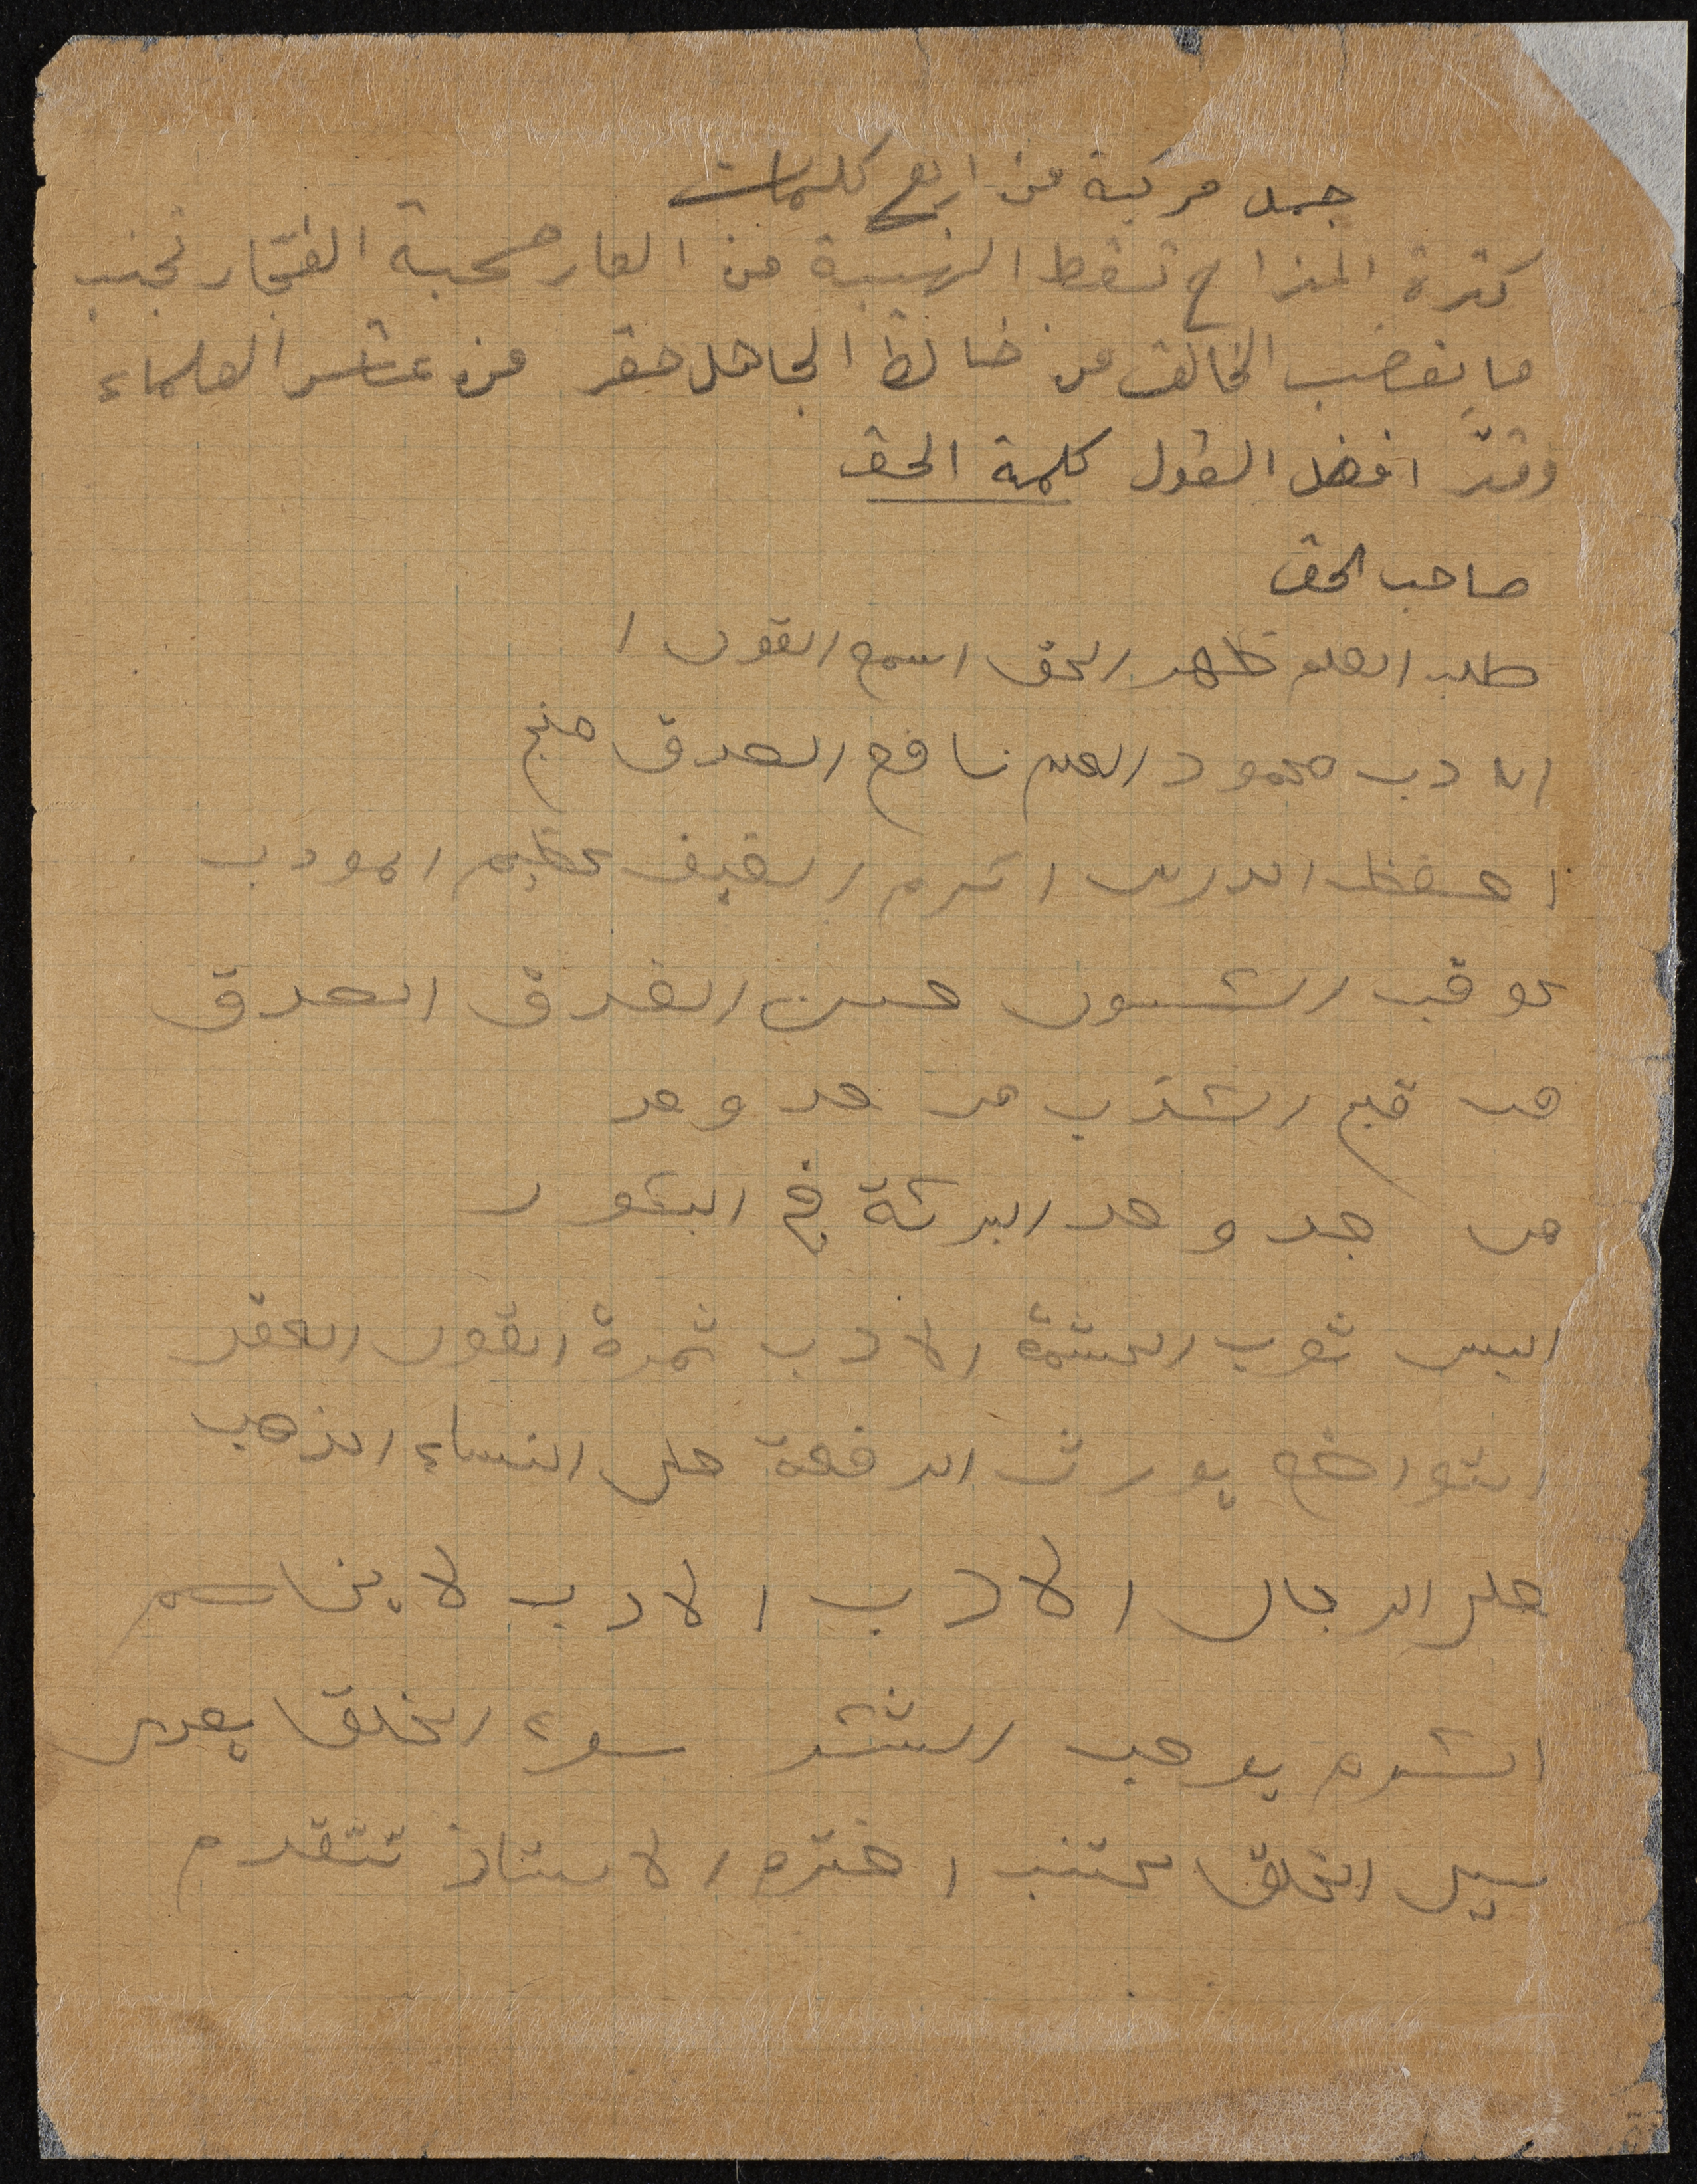 جمل مركبة من اربع كلمات
كثرة المزاح تسقط الهيبة من العار صحبة الفجّار تجنب
ما يغضب الخالق من خالط الجاهل حقر من عاشر العلماء
وقّر افضل القول كلمة الحق
صاحب الحق
طلب العلم ظهر الحق اسمع القول ا
الادب محمود العلم نافع الصدق منج
احفظ الدرس اكرم الضيف عظيم المودب
عوقب الكسول حسن الصدق
من قبح الكذب من جد وجد
من جد وجد البركة في البكور
البس ثوب الحشمة الادب ثمرة العقل
التواضع يورث الرفعة حلى النساء الذهب
حلى الرجال الادب الادب لا يخاسم
الشره يوجب الشر سوء الخلق يعدى
سيى الخلق يجتنب احترم الاستاذ تتقدم